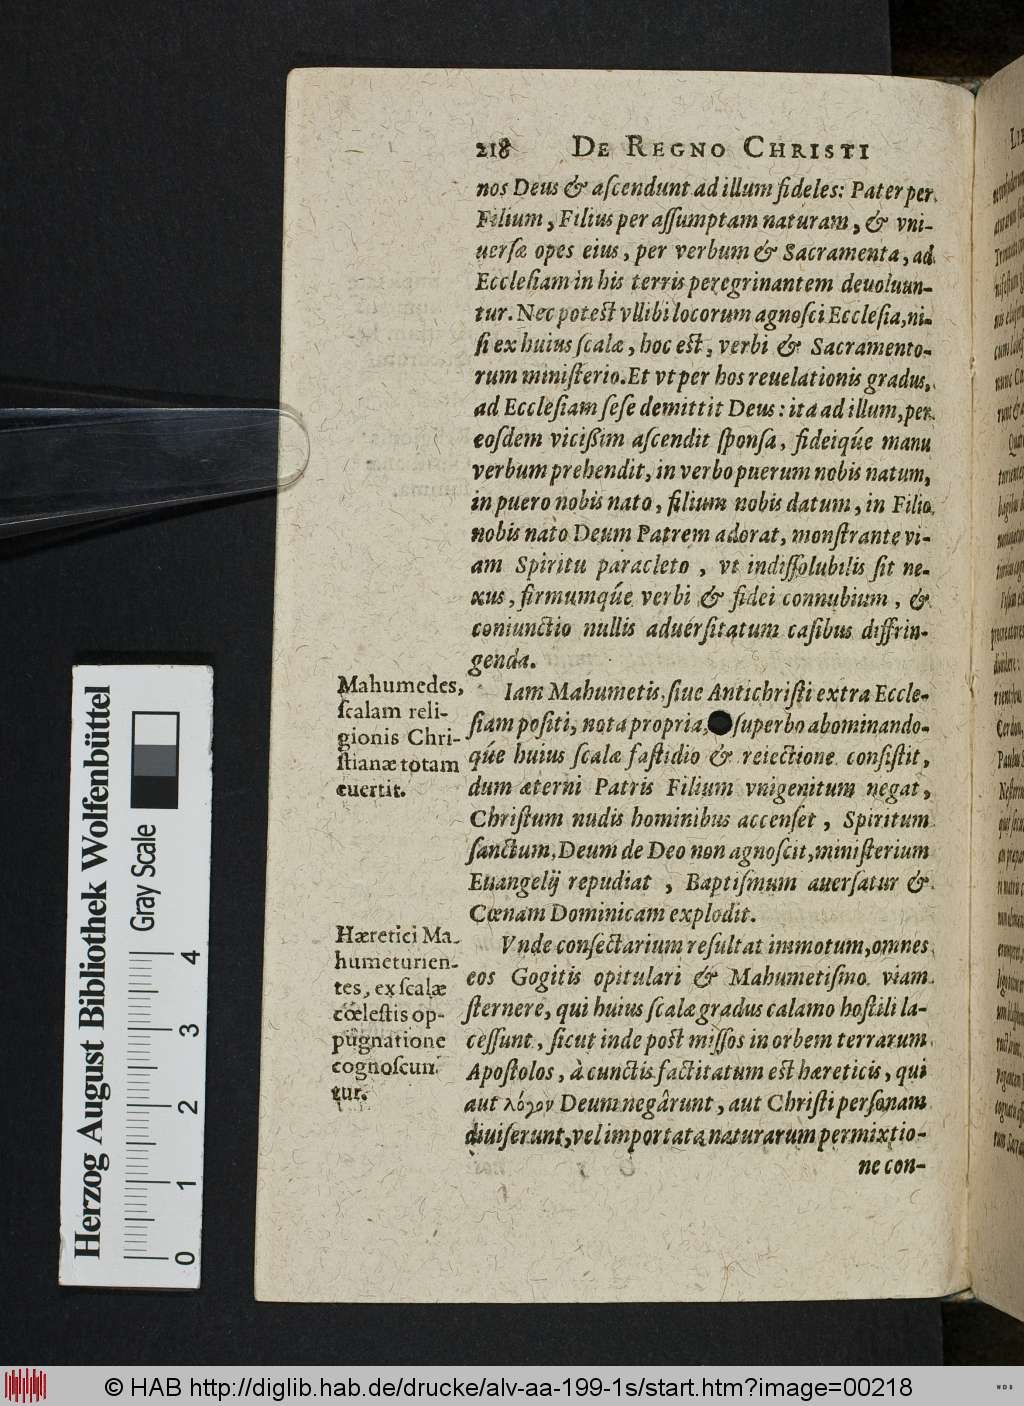 218 DE REGNO CHRISTI
nos Deus & ascendunt ad illum fideles: Pater per
Filium, Filius per assumptam naturam, & vni-
uersæ opes eius, per verbum & Sacramenta, ad
Ecclesiam in his terris peregrinantem deuoluun-
tur. Nec potest vllibi locorum agnosci Ecclesia, ni-
si ex huius scalæ, hoc est, verbi & Sacramento-
rum ministerio. Et vt per hos reuelationis gradus,
ad Ecclesiam sese demittit Deus: ita ad illum, per
eosdem vicißim ascendit sponsa, fideiq́ue manu
verbum prehendit, in verbo puerum nobis natum,
in puero nobis nato, filium nobis datum, in Filio
nobis nato Deum Patrem adorat, monstrante vi-
am Spiritu paracleto, vt indissolubilis sit ne-
xus, firmumq́ue verbi & fidei connubium, &
coniunctio nullis aduersitatum casibus diffrin-
genda.
Mahumedes,
scalam reli-
gionis Chri-
stianæ totam
euertit.
Iam Mahumetis, siue Antichristi extra Eccle-
siam positi, nota propria, superbo abominando-
q́ue huius scalæ fastidio & reiectione consistit,
dum æterni Patris Filium vnigenitum negat,
Christum nudis hominibus accenset, Spiritum
sanctum, Deum de Deo non agnoscit, ministerium
Euangelij repudiat, Baptismum auersatur &
Cœnam Dominicam explodit.
Hæretici Ma-
humeturien-
tes, ex scalæ
cœlestis op-
pugnatione
cognoscun
tur.
Vnde consectarium resultat immotum, omnes
eos Gogitis opitulari & Mahumetismo viam
sternere, qui huius scalæ gradus calamo hostili la-
cessunt, sicut inde post missos in orbem terrarum
Apostolos, à cunctis factitatum est hæreticis, qui
aut λόγον Deum negârunt, aut Christi personam
diuiserunt, vel importata naturarum permixtio-
ne con-
Herzog August Bibliothek Wolfenbüttel
Gray Scale
0 1 2 3 4
© HAB http://diglib.hab.de/drucke/alv-aa-199-1s/start.htm?image=00218